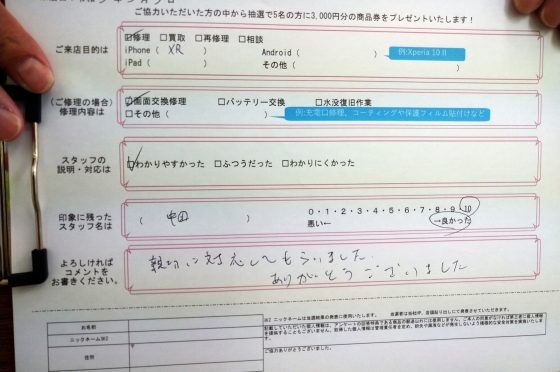 ご協力いただいた方の中から抽選で5名の方に3,000円分の商品券をプレゼントいたします！
ご来店目的は
☑修理 □買取 □再修理 □相談
iPhone ( XR ) Android ( )
例:Xperia 10 Ⅱ
iPad ( ) その他 ( )
(ご修理の場合)
修理内容は
☑画面交換修理 □バッテリー交換 □水没復旧作業
□その他 ( )
例:充電口修理、コーティングや保護フィルム貼付けなど
スタッフの
説明・対応は
☑わかりやすかった □ふつうだった □わかりにくかった
印象に残った
スタッフ名は
( 中田 )
0・1・2・3・4・5・6・7・8・9・10
悪い← →良かった
よろしければ
コメントを
お書きください。
親切に対応してもらいました。
ありがとうございました
お名前
ニックネーム※2
住所
ご協力ありがとうございました。